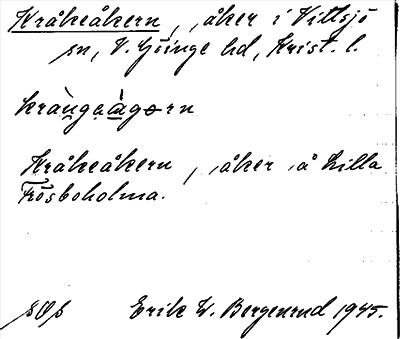 Kråkeåkern, åker i Vittsjö
sn, V. Göinge hd, Krist. l.
kràŋgaàgərn
Kråkeåkern, åker å Lilla
Frösboholma.
Erik W. Bergenrud 1945.